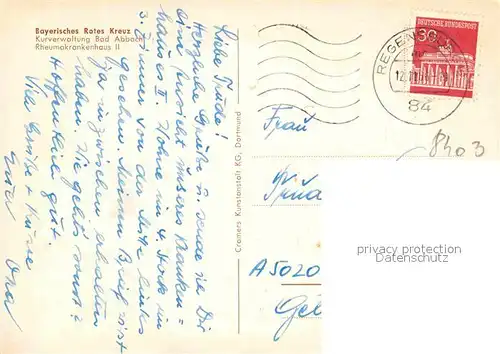 Bayerisches Rotes Kreuz
Kurverwaltung Bad Abbach
Rheumakrankenhaus II
Liebe Trude!
Herzliche Grüße u. sende ich Dir
eine Ansicht unseres Kranken=
haus II. Wohne im 4. Stock im
3. Zimmer von der Mitte links
gesehen. Meinen Brief hast
ja inzwischen erhalten
haben. Wie geht's sonst?
Hoffentlich gut.
Viele Grüße + Küsse
Cramers Kunstanstalt KG, Dortmund
DEUTSCHE BUNDESPOST
30
REGENSBURG
84
Frau
8403
A5020
privacy protection
Datenschutz